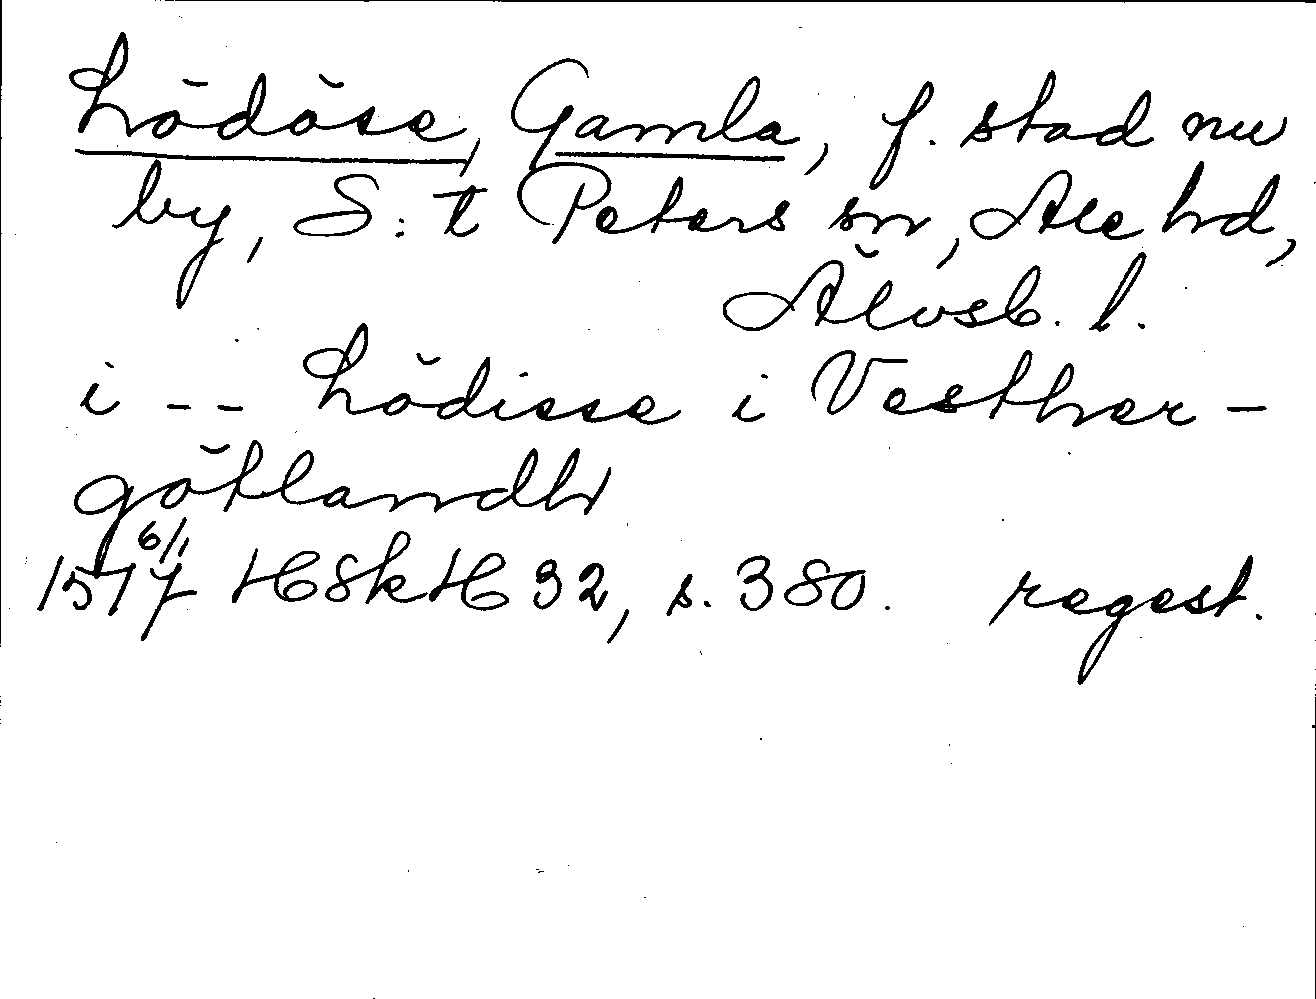 Lödöse, Gamla, f. stad nu
by, S:t Peters sn, Ale hd,
Älvsb. l.
i -- Lödisse i Vesther-
götlandh
1517 6/1 HSkH 32, s. 380. regest.